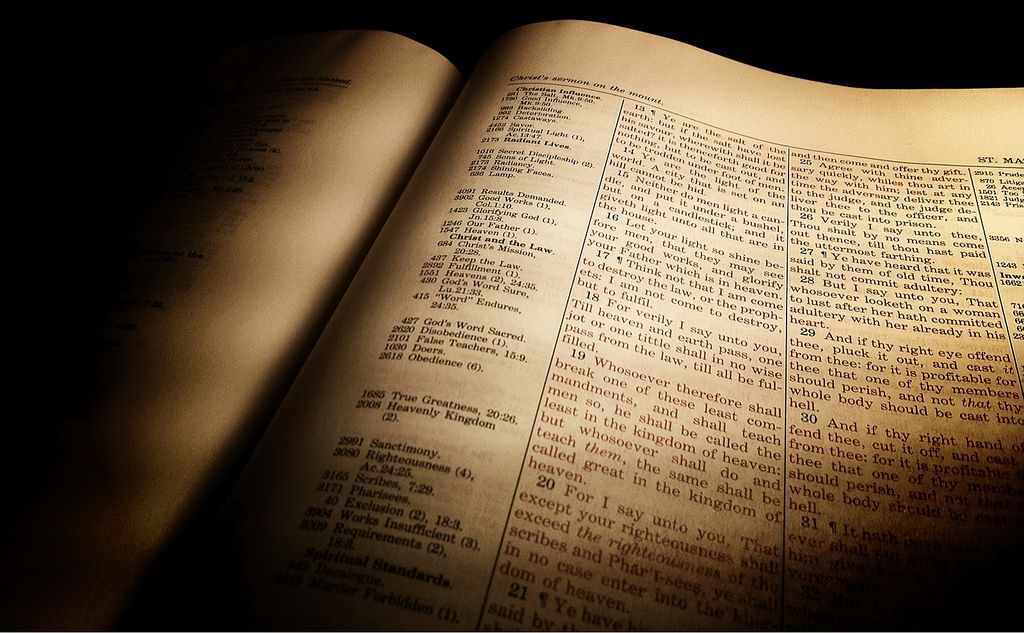 Christ's sermon on the mount.
ST. MA
Christian Influence.
281 The Salt, Mk.9:50.
1780 Good Influence,
Mk.9:50.
993 Backsliding.
962 Deterioration.
1274 Castaways.
4452 Savor.
2166 Spiritual Light (1),
Ac.13:47.
2173 Radiant Lives.
1016 Secret Discipleship (2).
745 Sons of Light.
2173 Radiancy.
2174 Shining Faces.
636 Lamp.
4091 Results Demanded.
3902 Good Works (1),
Col.1:10.
1423 Glorifying God (1),
Jn.15:8.
1246 Our Father (1).
1547 Heaven (1).
Christ and the Law.
684 Christ's Mission,
20:28.
437 Keep the Law.
2892 Fulfillment (1).
1551 Heavens (2), 24:35.
430 God's Word Sure,
Lu.21:33.
415 "Word" Endures,
24:35.
427 God's Word Sacred.
2620 Disobedience (1).
2101 False Teachers, 15:9.
1030 Doers.
2618 Obedience (6).
1685 True Greatness, 20:26.
2008 Heavenly Kingdom
(2).
2991 Sanctimony.
3080 Righteousness (4),
Ac.24:25.
3165 Scribes, 7:29.
3171 Pharisees.
40 Exclusion (2), 18:3.
3904 Works Insufficient (3).
3009 Requirements (2),
18:3.
Spiritual Standards.
949 Decalogue.
2449 Murder Forbidden (1).
13 ¶ Ye are the salt of the
earth: but if the salt have lost
his savour, wherewith shall it be
salted? it is thenceforth good for
nothing, but to be cast out, and to
be trodden under foot of men.
14 Ye are the light of the
world. A city that is set on an
hill cannot be hid.
15 Neither do men light a can-
dle, and put it under a bushel,
but on a candlestick; and it
giveth light unto all that are in
the house.
16 Let your light so shine be-
fore men, that they may see
your good works, and glorify
your Father which is in heaven.
17 ¶ Think not that I am come
to destroy the law, or the proph-
ets: I am not come to destroy,
but to fulfil.
18 For verily I say unto you,
Till heaven and earth pass, one
jot or one tittle shall in no wise
pass from the law, till all be ful-
filled.
19 Whosoever therefore shall
break one of these least com-
mandments, and shall teach
men so, he shall be called the
least in the kingdom of heaven:
but whosoever shall do and
teach them, the same shall be
called great in the kingdom of
heaven.
20 For I say unto you, That
except your righteousness shall
exceed the righteousness of the
scribes and Phar'i-sees, ye shall
in no case enter into the king-
dom of heaven.
21 ¶ Ye have
said by
and then come and offer thy gift.
25 Agree with thine adver-
sary quickly, whiles thou art in
the way with him; lest at any
time the adversary deliver thee
to the judge, and the judge de-
liver thee to the officer, and
thou be cast into prison.
26 Verily I say unto thee,
Thou shalt by no means come
out thence, till thou hast paid
the uttermost farthing.
27 ¶ Ye have heard that it was
said by them of old time, Thou
shalt not commit adultery:
28 But I say unto you, That
whosoever looketh on a woman
to lust after her hath committed
adultery with her already in his
heart.
29 And if thy right eye offend
thee, pluck it out, and cast it
from thee: for it is profitable for
thee that one of thy members
should perish, and not that thy
whole body should be cast into
hell.
30 And if thy right hand of
fend thee, cut it off, and cast
from thee: for it is profitable
thee that one of thy memb
should perish, and not that
whole body should be cast
hell.
31 ¶ It hath
ever shall
him give
32
2915
870
26
1501 Too
1821
2142
3356
1243